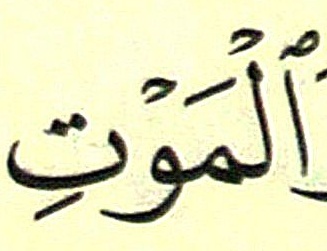 ٱلْمَوْتِ